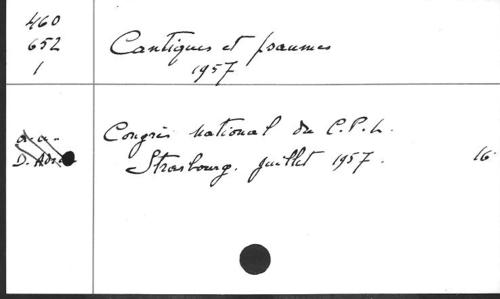 460
652
1
Cantiques et psaumes
1957
a.a.
D.
Congrès National du C.P.L.
Strasbourg. juillet 1957.
16